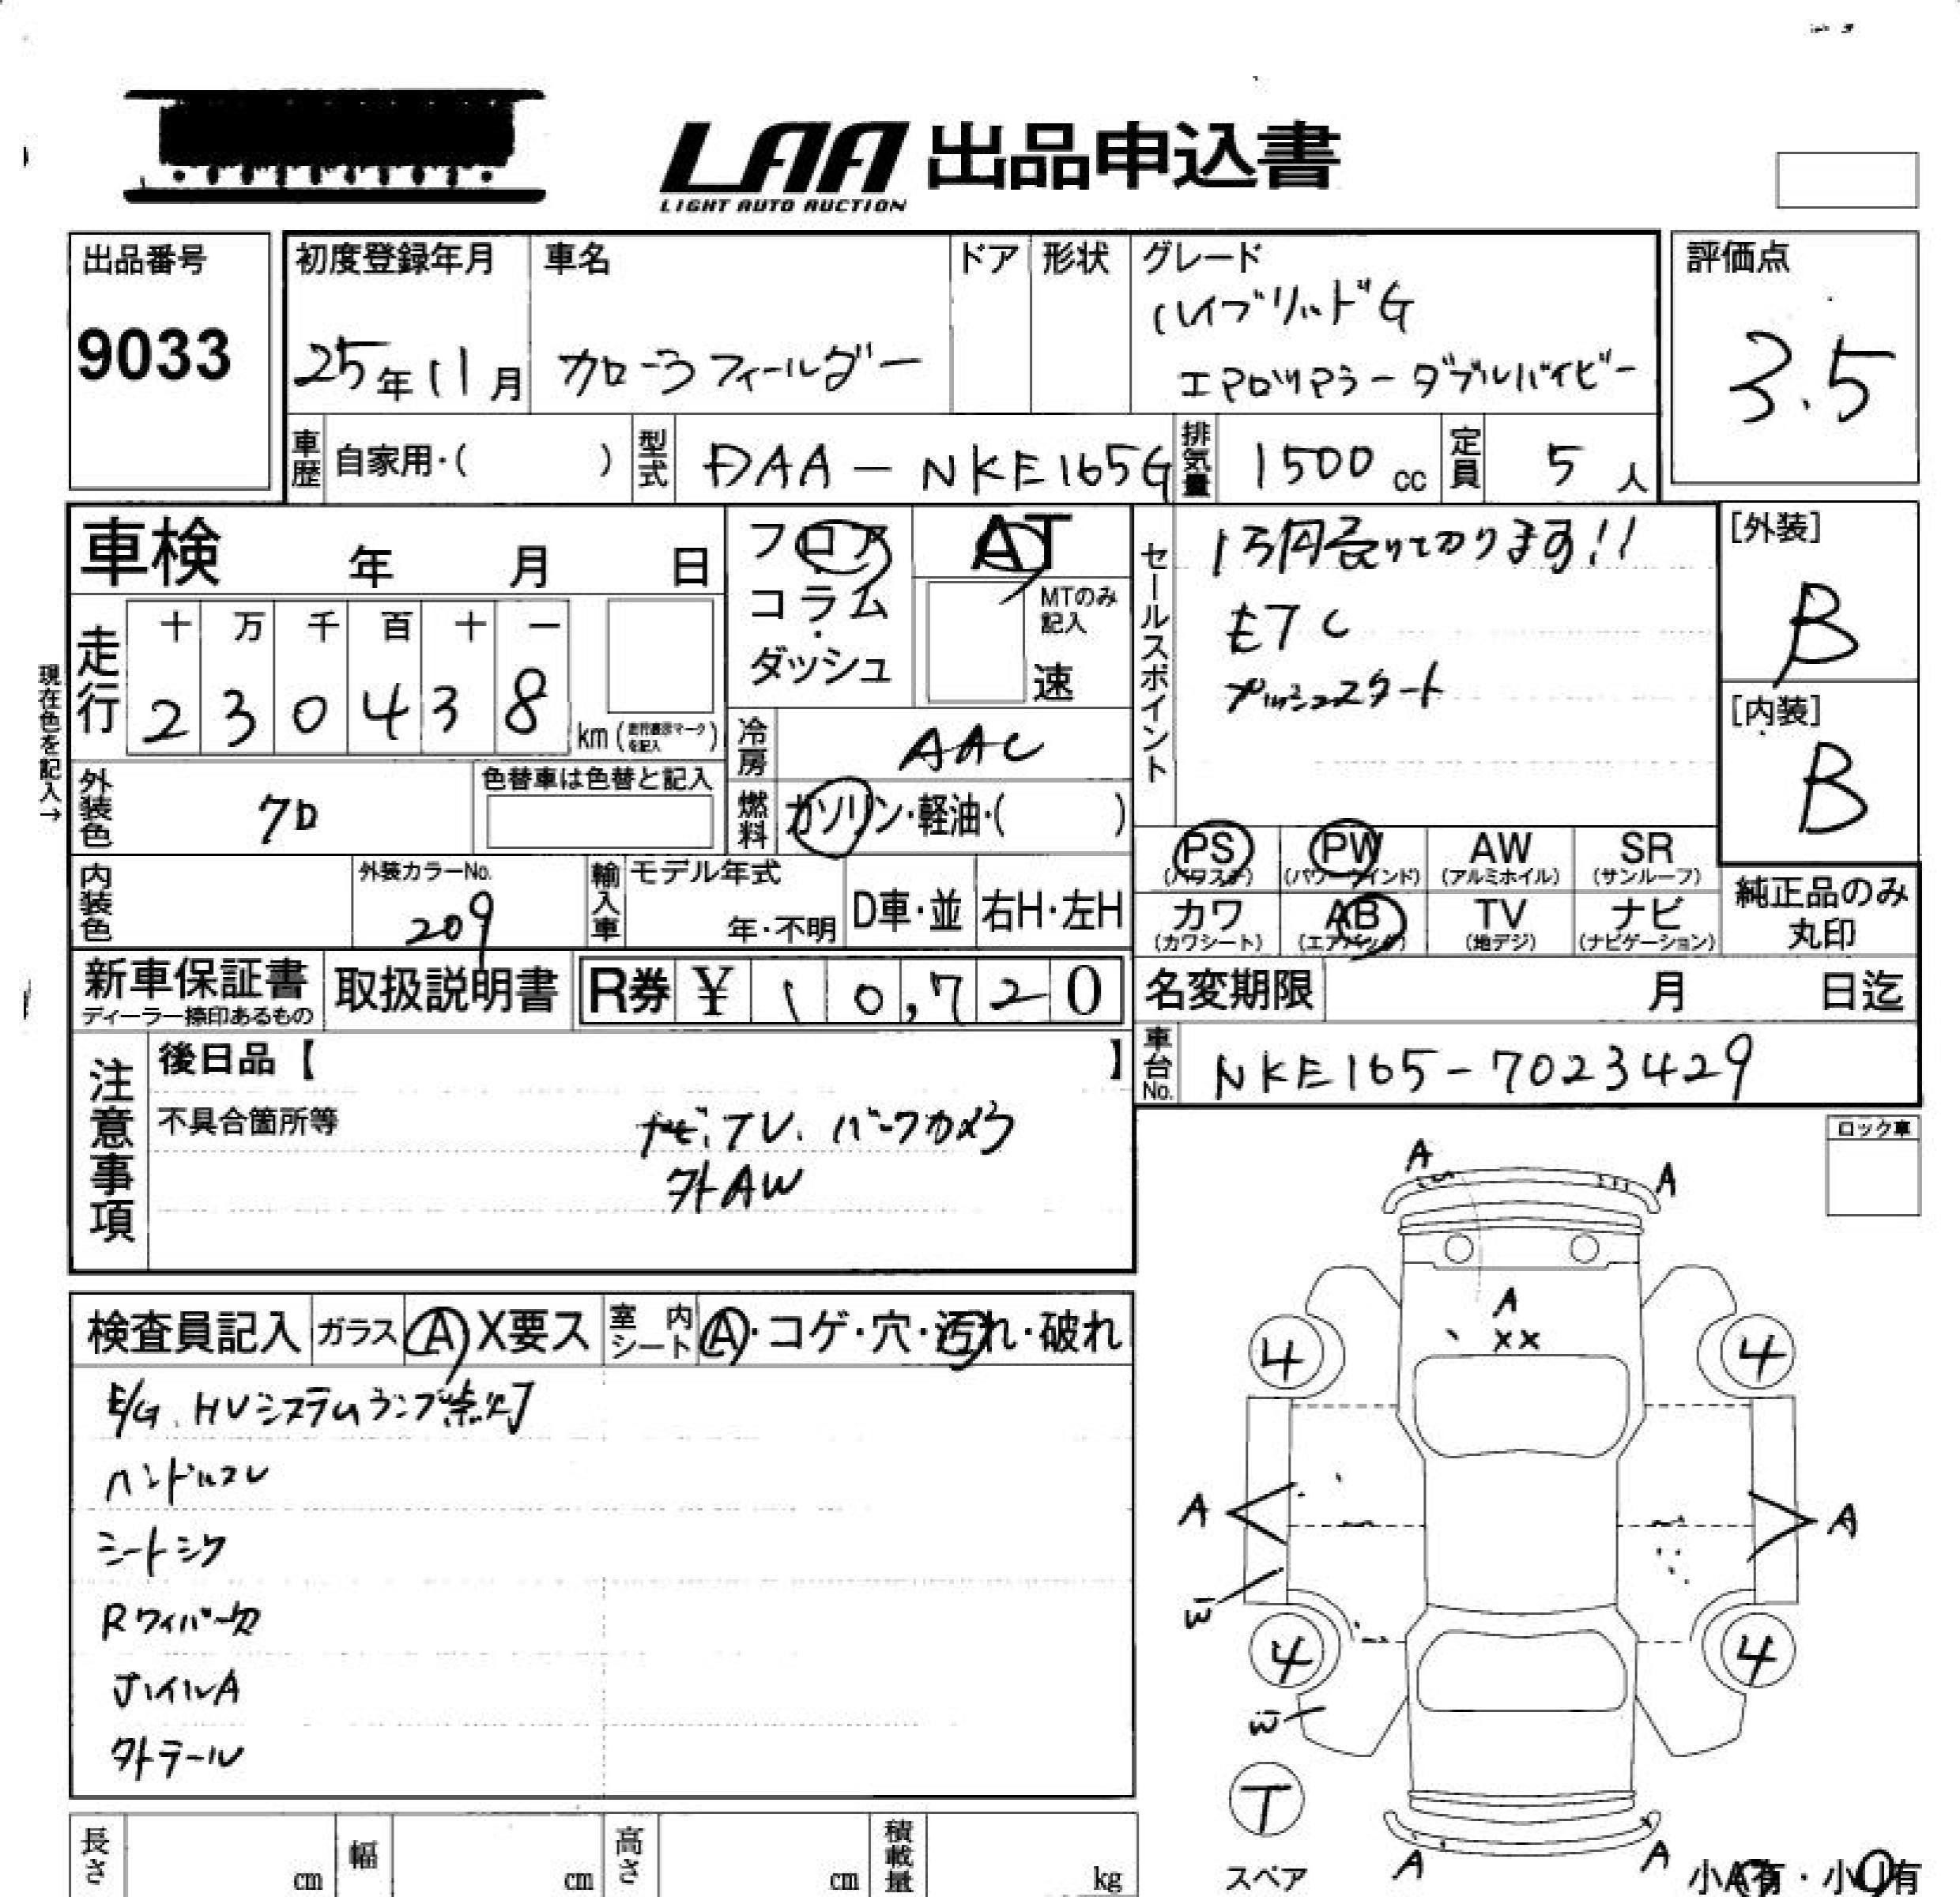 LAA 出品申込書
LIGHT AUTO AUCTION
出品番号
9033
初度登録年月
25年11月
車名
カローラフィールダー
ドア
形状
グレード
ハイブリッドG
エアロツアラーダブルバイビー
評価点
3.5
車歴
自家用・( )
型式
DAA-NKE165G
排気量
1500cc
定員
5人
車検 年 月 日
フロア
コラム
ダッシュ
AT
MTのみ
記入
速
セールスポイント
1万円 ります!!
ETC
プッシュスタート
[外装]
B
[内装]
B
現在色を記入→
走行
十 万 千 百 十 一
2 3 0 4 3 8
km(走行表示マークを記入)
冷房
AAC
燃料
ガソリン・軽油・( )
外装色
7D
色替車は色替と記入
内装色
外装カラーNo.
209
輸入車
モデル年式
年・不明
D車・並
右H・左H
PS
(パワステ)
PW
(パワーウインド)
AW
(アルミホイル)
SR
(サンルーフ)
カワ
(カワシート)
AB
(エアバック)
TV
(地デジ)
ナビ
(ナビゲーション)
純正品のみ
丸印
新車保証書
ディーラー捺印あるもの
取扱説明書
R券 ¥ 10,720
名変期限 月 日迄
車台No.
NKE165-7023429
注意事項
後日品【 】
不具合箇所等
ナビ、TV、バックカメラ
外AW
ロック車
検査員記入
ガラス A X要ス
室内シート A・コゲ・穴・汚れ・破れ
E/G、HVシステムランプ点灯
ハンドルスレ
シートシワ
Rワイパー欠
ホイルA
外テール
A
A
A
XX
4
4
A
A
W
4
4
W
T
スペア
A
A
小A有・小U有
長さ cm
幅 cm
高さ cm
積載量 kg